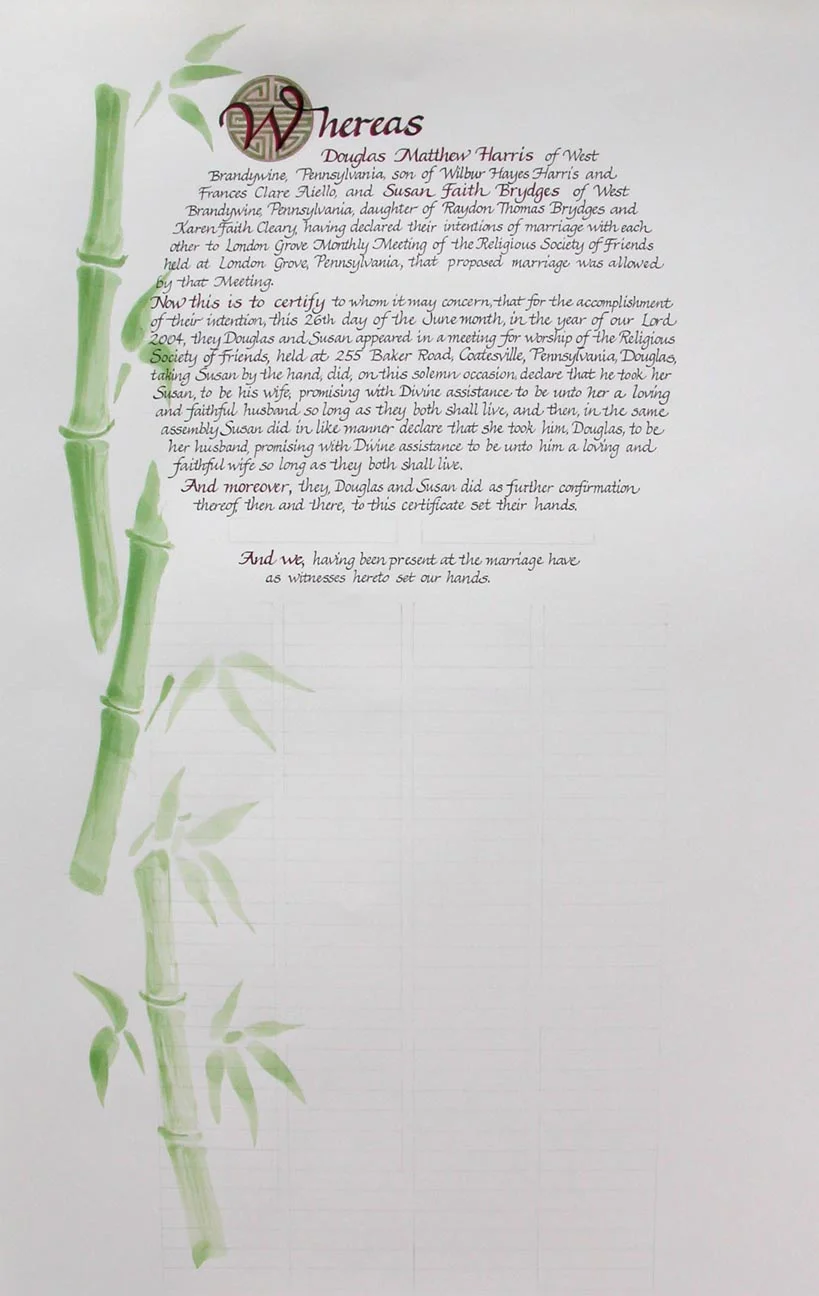 Whereas
Douglas Matthew Harris of West
Brandywine, Pennsylvania, son of Wilbur Hayes Harris and
Frances Clare Aiello, and Susan Faith Brydges of West
Brandywine, Pennsylvania, daughter of Raydon Thomas Brydges and
Karen Faith Cleary, having declared their intentions of marriage with each
other to London Grove Monthly Meeting of the Religious Society of Friends
held at London Grove, Pennsylvania, that proposed marriage was allowed
by that Meeting.
Now this is to certify to whom it may concern, that for the accomplishment
of their intention, this 26th day of the June month, in the year of our Lord
2004, they Douglas and Susan appeared in a meeting for worship of the Religious
Society of Friends, held at 255 Baker Road, Coatesville, Pennsylvania, Douglas,
taking Susan by the hand, did, on this solemn occasion, declare that he took her
Susan, to be his wife, promising with Divine assistance to be unto her a loving
and faithful husband so long as they both shall live, and then, in the same
assembly Susan did in like manner declare that she took him, Douglas, to be
her husband, promising with Divine assistance to be unto him a loving and
faithful wife so long as they both shall live.
And moreover, they, Douglas and Susan did as further confirmation
thereof, then and there, to this certificate set their hands.
And we, having been present at the marriage have
as witnesses hereto set our hands.